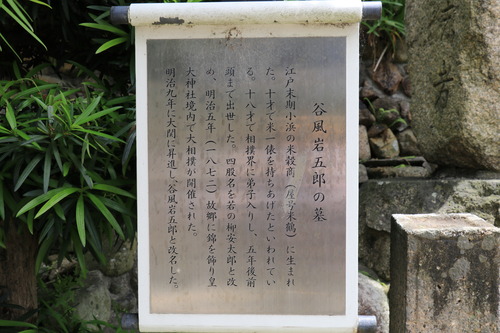 谷風岩五郎の墓
江戸末期小浜の米穀商(屋号米鶴)に生まれ
た。十才で米一俵を持ちあげたといわれてい
る。十八才で相撲界に弟子入りし、五年後前
頭まで出世した。四股名を若の柳安太郎と改
め、明治五年(一八七二)故郷に錦を飾り皇
大神社境内で大相撲が開催された。
明治九年に大関に昇進し、谷風岩五郎と改名した。